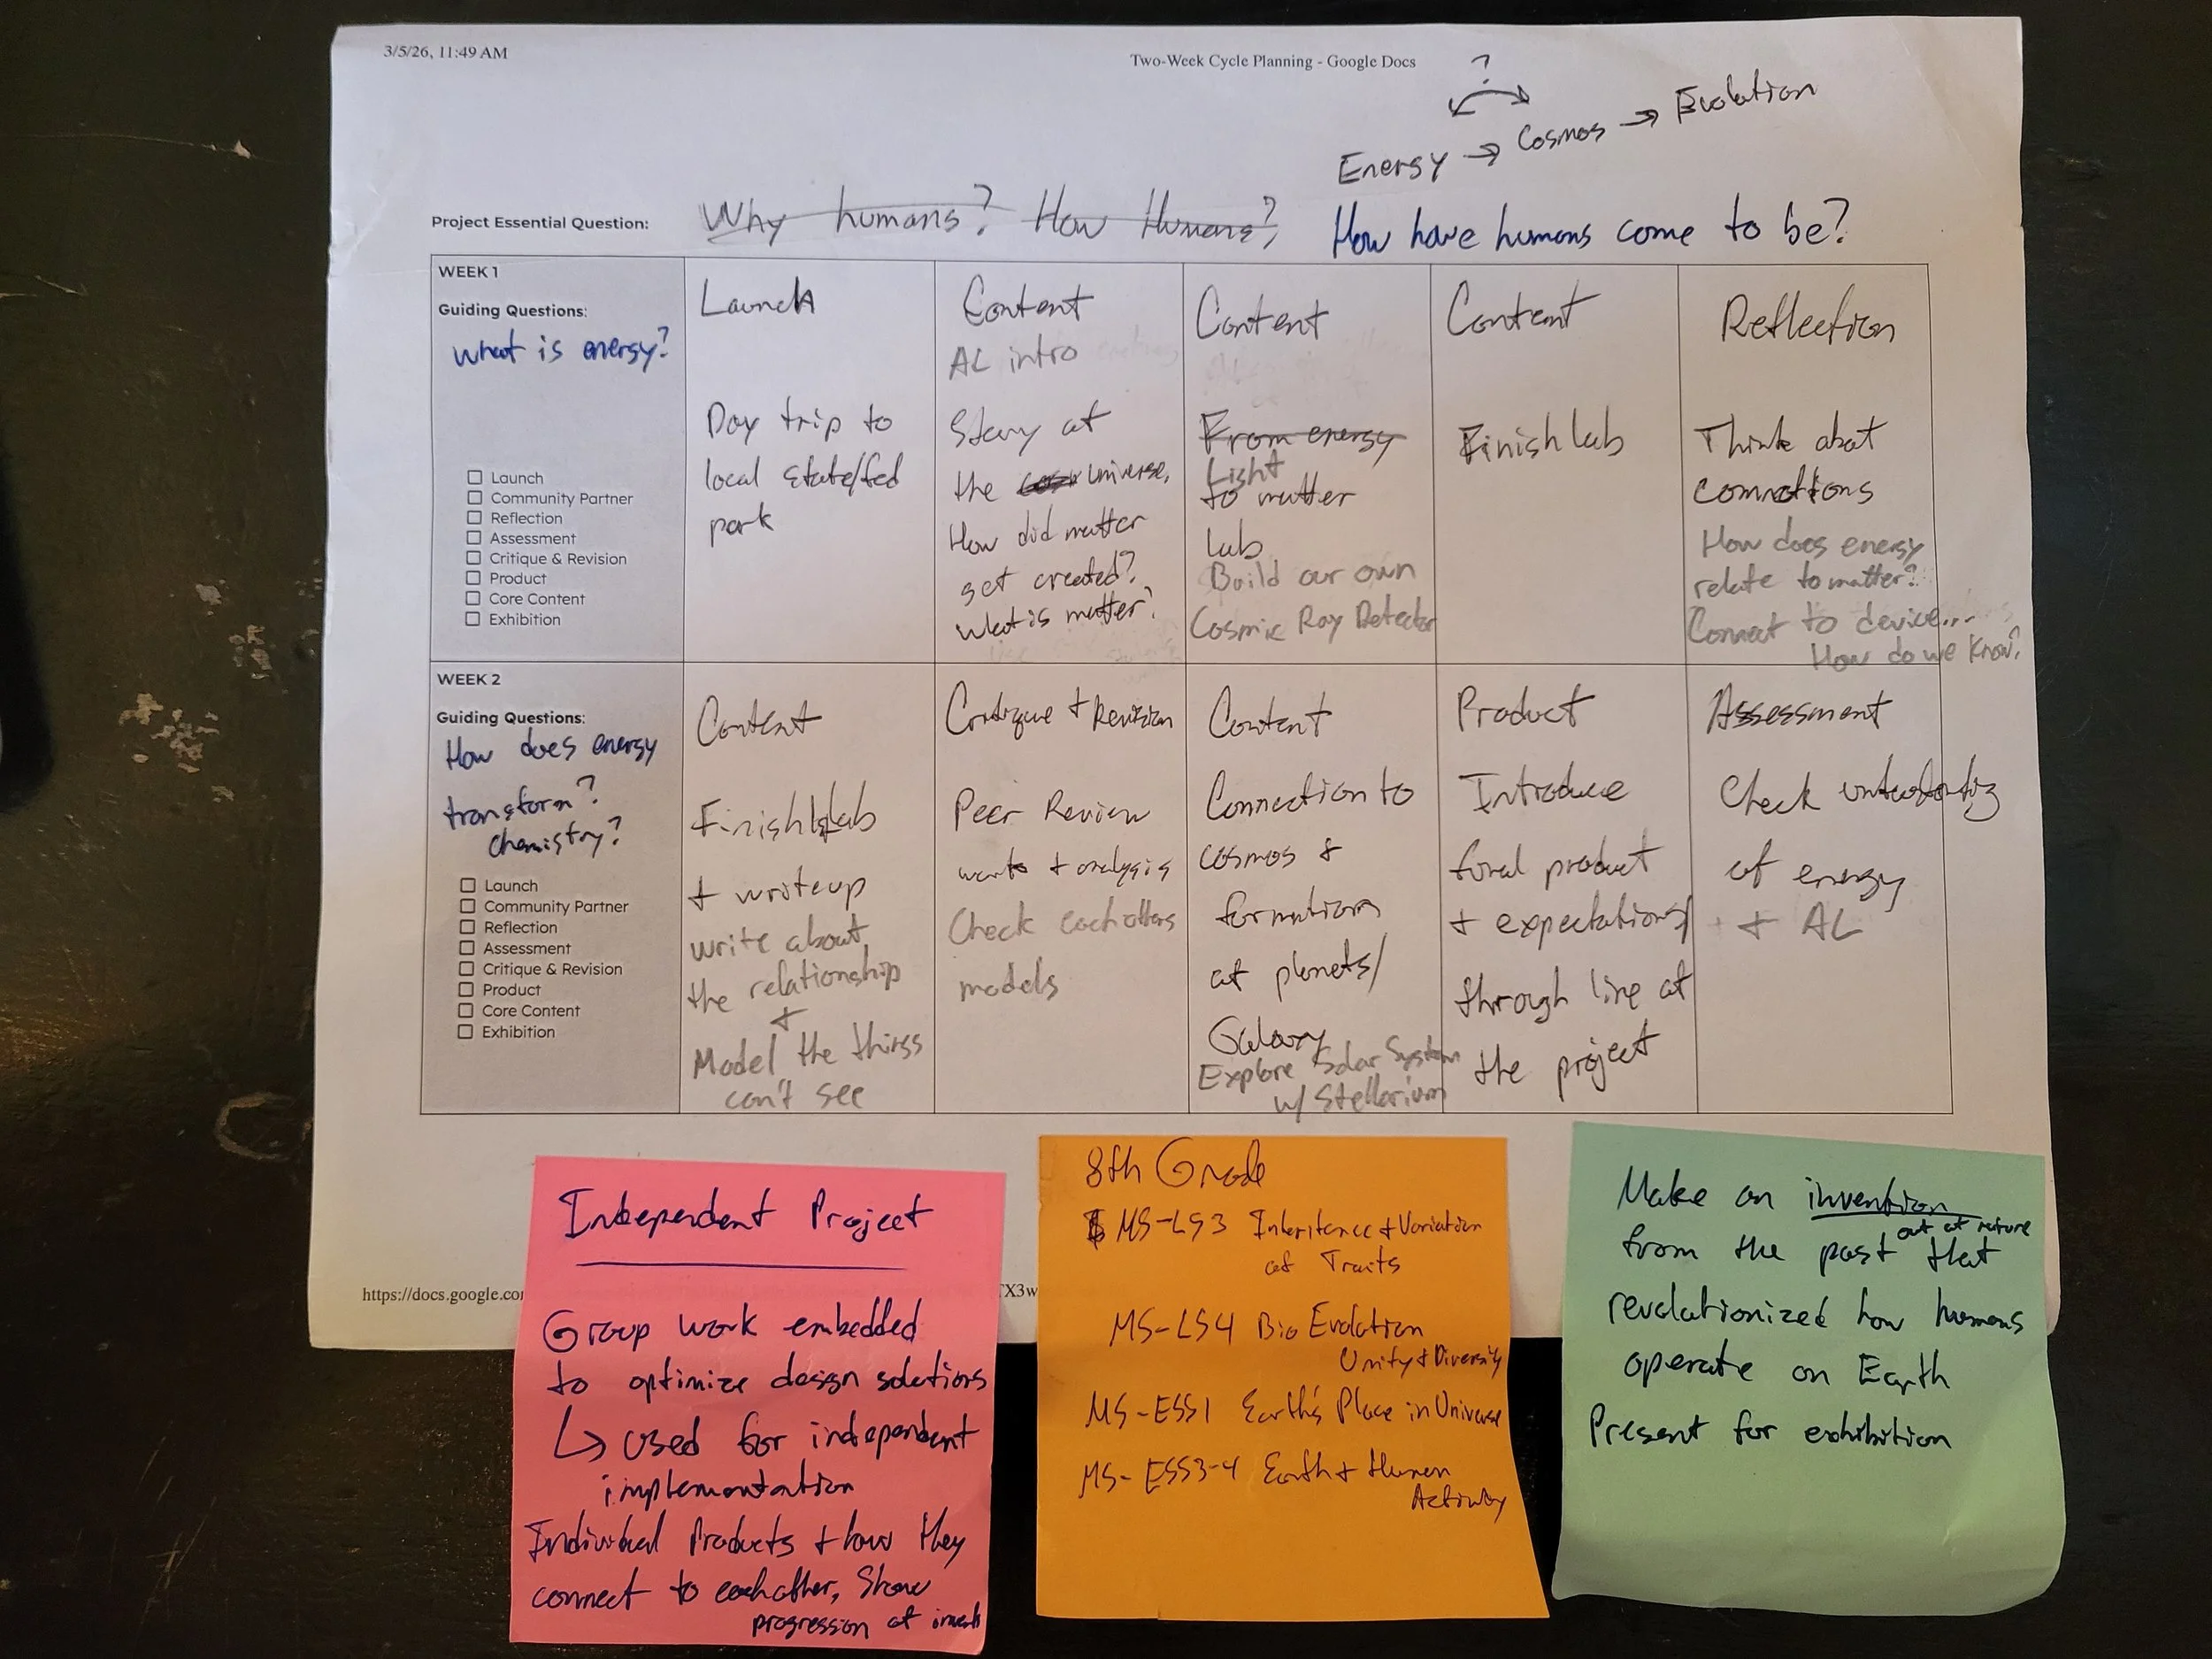 3/5/26, 11:49 AM
Two-Week Cycle Planning - Google Docs
?
Energy → Cosmos → Evolution
Project Essential Question:
Why humans? How Humans?
How have humans come to be?
WEEK 1
Guiding Questions:
What is energy?
☐ Launch
☐ Community Partner
☐ Reflection
☐ Assessment
☐ Critique & Revision
☐ Product
☐ Core Content
☐ Exhibition
Launch
Day trip to
local state/fed
park
Content
AL intro
Story of
the Universe,
How did matter
get created?
What is matter?
Content
From energy
Light
to matter
lab
Build our own
Cosmic Ray Detector
Content
Finish lab
Reflection
Think about
connections
How does energy
relate to matter?
Connect to device...
How do we know?
WEEK 2
Guiding Questions:
How does energy
transform?
Chemistry?
☐ Launch
☐ Community Partner
☐ Reflection
☐ Assessment
☐ Critique & Revision
☐ Product
☐ Core Content
☐ Exhibition
Content
Finish lab
+ writeup
write about
the relationship
+
Model the things
can't see
Critique + Revision
Peer Review
work + analysis
Check each others
models
Content
Connection to
cosmos &
formation
of planets/
Galaxy
Explore Solar System
w/ Stellarium
Product
Introduce
final product
+ expectations/
through line of
the project
Assessment
Check understanding
of energy
+ AL
https://docs.google.co
X3w
Independent Project
Group work embedded
to optimize design solutions
↳ used for independent
implementation
Individual Products + how they
connect to eachother, Show
progression of
8th Grade
MS-LS3 Inheritence + Variation
of Traits
MS-LS4 Bio Evolution
Unity + Diversity
MS-ESS1 Earth's Place in Universe
MS-ESS3-4 Earth + Human
Activity
Make an invention
out of nature
from the past that
revolutionized how humans
operate on Earth
Present for exhibition